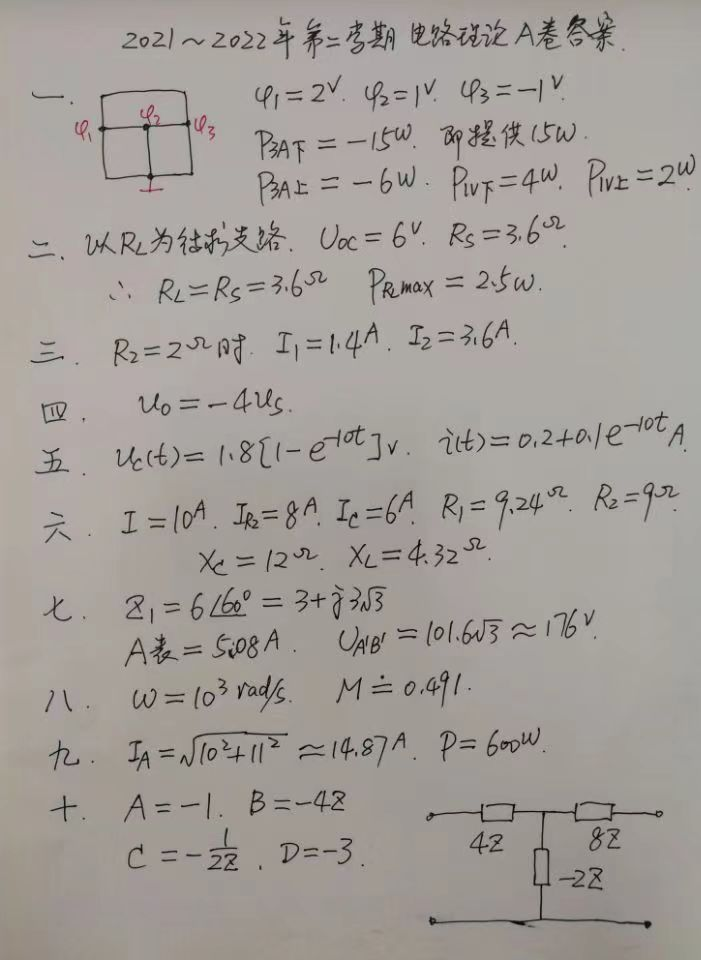 2021～2022年第二学期 电路理论 A卷答案.
一. φ1 φ2 φ3 φ1=2V. φ2=1V. φ3=-1V.
P3A下=-15W. 即提供15W.
P3A上=-6W. P1V下=4W. P1V上=2W.
二. 以RL为待求支路. UOC=6V. RS=3.6Ω.
∴ RL=RS=3.6Ω PRLmax=2.5W.
三. R2=2Ω时. I1=1.4A. I2=3.6A.
四. uo=-4us.
五. uc(t)=1.8[1-e^{-10t}]V. i(t)=0.2+0.1e^{-10t}A.
六. I=10A. IR2=8A. IC=6A. R1=9.24Ω. R2=9Ω.
XC=12Ω. XL=4.32Ω.
七. Z1=6∠60°=3+j3√3
A表=5.08A. UA'B'=101.6√3≈176V.
八. ω=10³rad/s. M≐0.491.
九. IA=√(10²+11²)≈14.87A. P=600W.
十. A=-1. B=-4Z
C=-1/2Z. D=-3.
4Z 8Z
-2Z